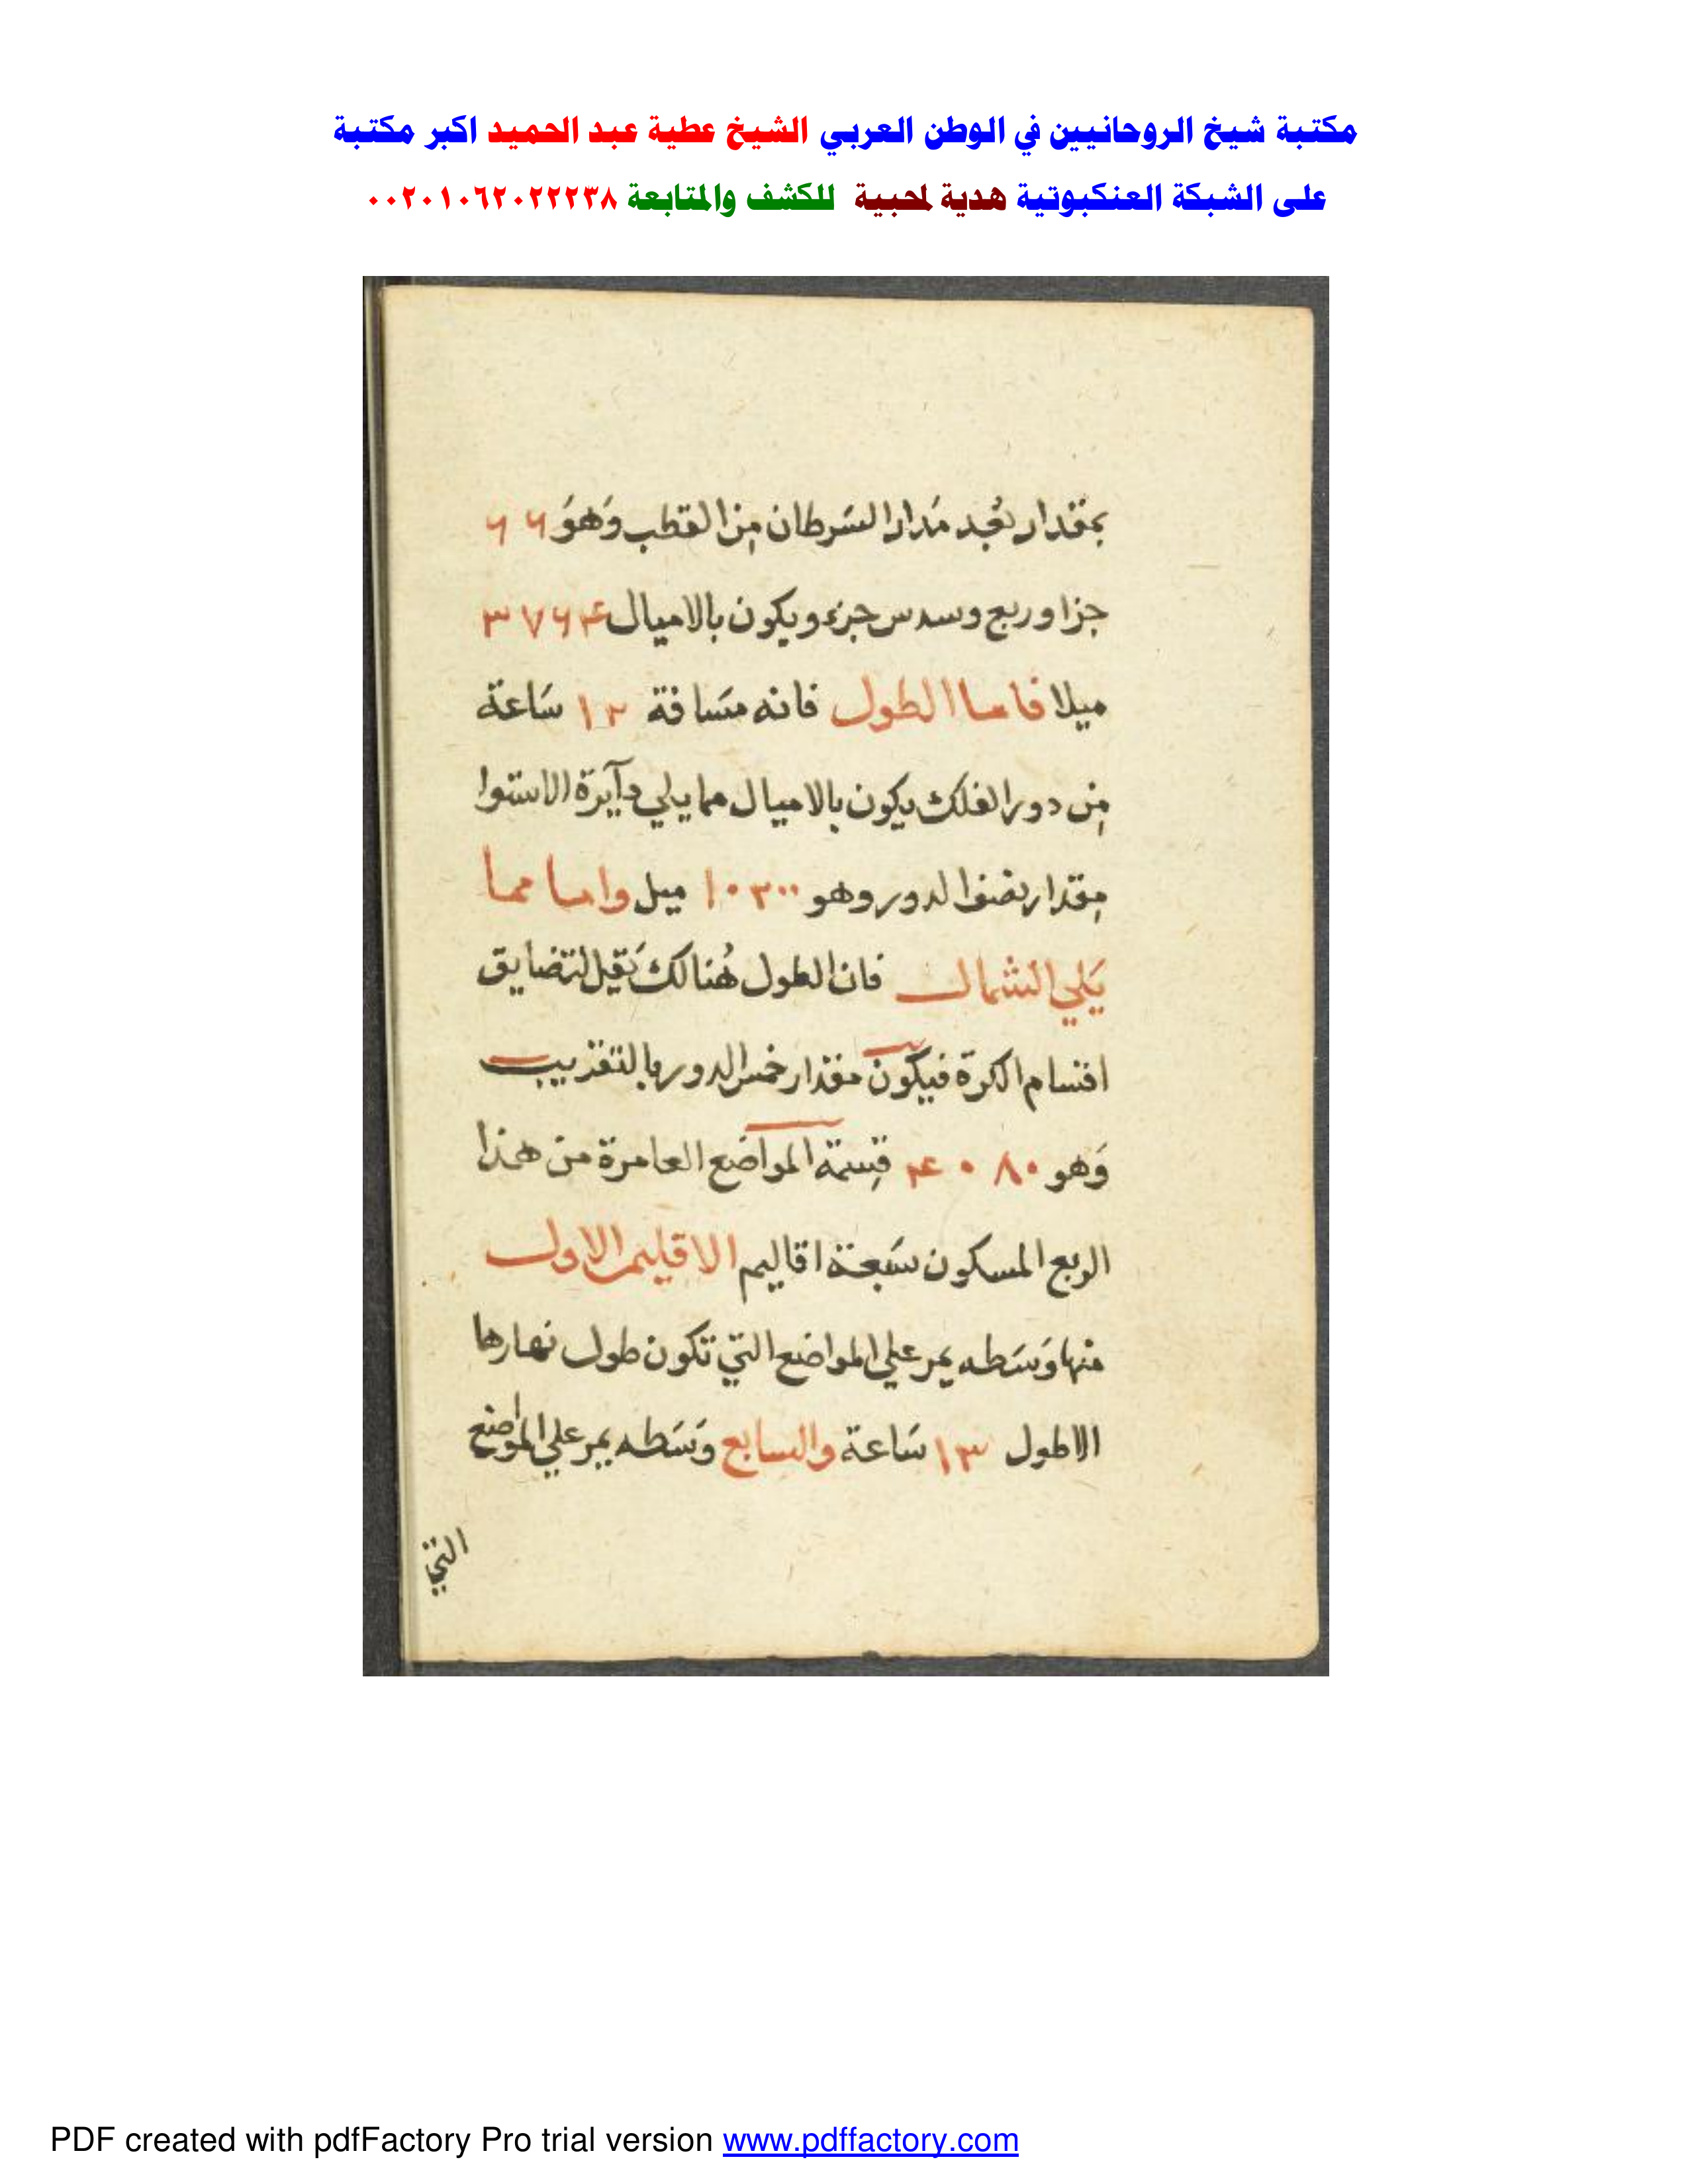 مكتبة شيخ الروحانيين في الوطن العربي الشيخ عطية عبد الحميد اكبر مكتبة
على الشبكة العنكبوتية هدية لمحبية للكشف والمتابعة ٠٠٢٠١٠٦٢٠٢٢٢٣٨
بمقدار بُعد مَدار السَرطان مِن القطب وَهوَ ٦٦
جزا وربع وسدس جزء ويكون بالاميال ٣٧٦٤
ميلا فاما الطول فانه مسَافة ١٢ سَاعة
مِن دور الفلك يكون بالاميال مما يلي دآيرة الاستوا
مِقدار نصف الدور وهو ١٠٢٠٠ ميل واما مما
يَلي الشمال فان الطول هُنالك يَقل لتضايق
اقسام الكرة فيكون مقدار خمس الدور بالتقريب
وَهو ٤٠٨٠ قِسمة المواضع العامرة من هذا
الربع المسكون سَبعة اقاليم الاقليم الاول
منها وَسَطه يمر علي المواضع التي تكون طول نهارها
الاطول ١٣ سَاعة والسابع وَسَطه يمر علي المواضع
التي
PDF created with pdfFactory Pro trial version www.pdffactory.com